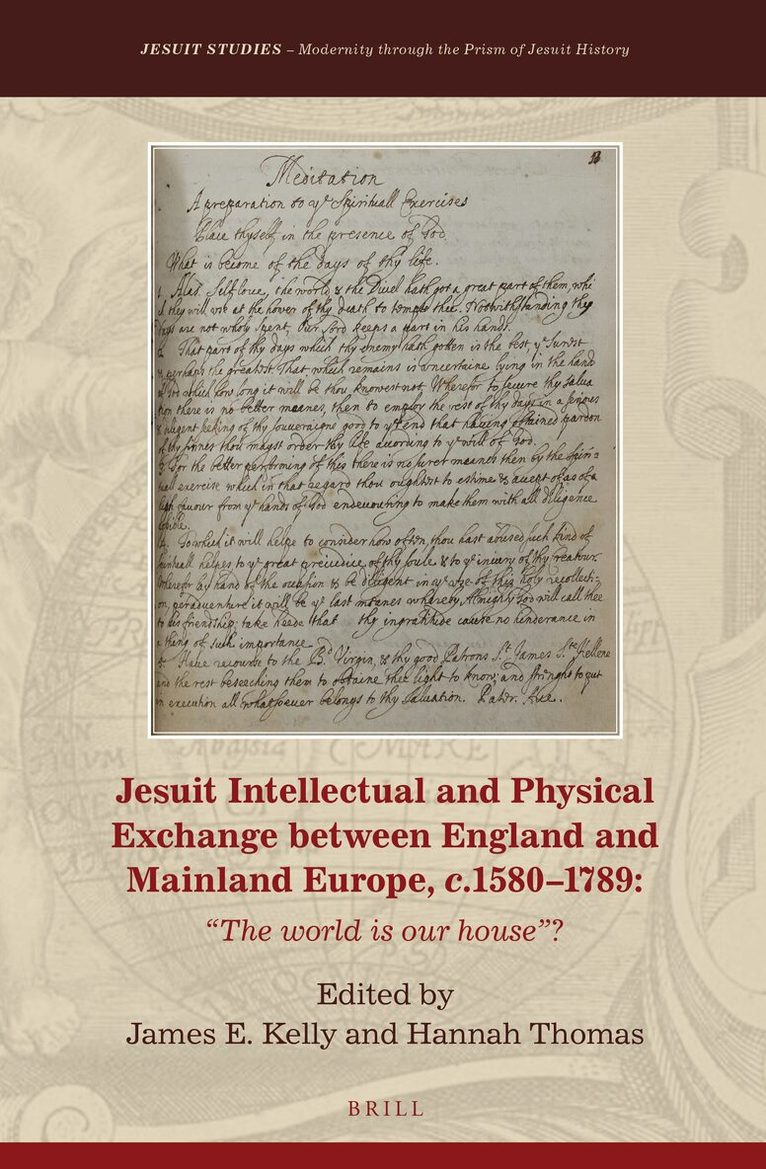 JESUIT STUDIES – Modernity through the Prism of Jesuit History
13
Meditation
A preparation to yᵉ Spirituall Exercises
Place thyself in the presence of God.
What is become of the days of thy life.
1. Alas Selflove, the world & the Divel hath got a great part of them, whi
they will at the hower of thy death to tempte thee. Notwithstanding they
are not wholy spent, Our Lord keeps a part in his hands.
That part of thy days which thy enemy hath gotten is the best, yᵉ surest
& perhaps the greatest That which remains is uncertaine lying in the hand
of God which how long it will be thou knowest not. Wherefor to secure thy salva
on there is no better meanes, then to employ the rest of thy days in a
seking of thy souveraigne good to yᵉ end that having obtained pardon
of thy sinnes thou mayst order thy life according to yᵉ will of God.
3. For the better performing of this there is no surer meanes then by the
exercise which in that regard thou oughtest to esteme & accept of as of a
favour from yᵉ hands of God endevouring to make them with all diligence
4. To which it will helpe to consider how often thou hast abused such kind of
helps to yᵉ great preiudice of thy soule & to yᵉ iniury of thy creatour.
lay hand of the occasion & be diligent in yᵉ use of this holy recollecti:
on, peradventure it will be yᵉ last meanes whereby Almighty God will call thee
to his friendship; take heede that thy ingratitude cause no hinderance in
a thing of such importance.
Have recourse to the Bᵈ Virgin, & thy good Patrons Sᵗ James Sᵗᵉ Hellene
and the rest beseeching them to obtaine thee light to know; and strenght to put
in execution all whatsoever belongs to thy Salvation. Patʳ. Ave.
Jesuit Intellectual and Physical
Exchange between England and
Mainland Europe, c.1580–1789:
“The world is our house”?
Edited by
James E. Kelly and Hannah Thomas
BRILL